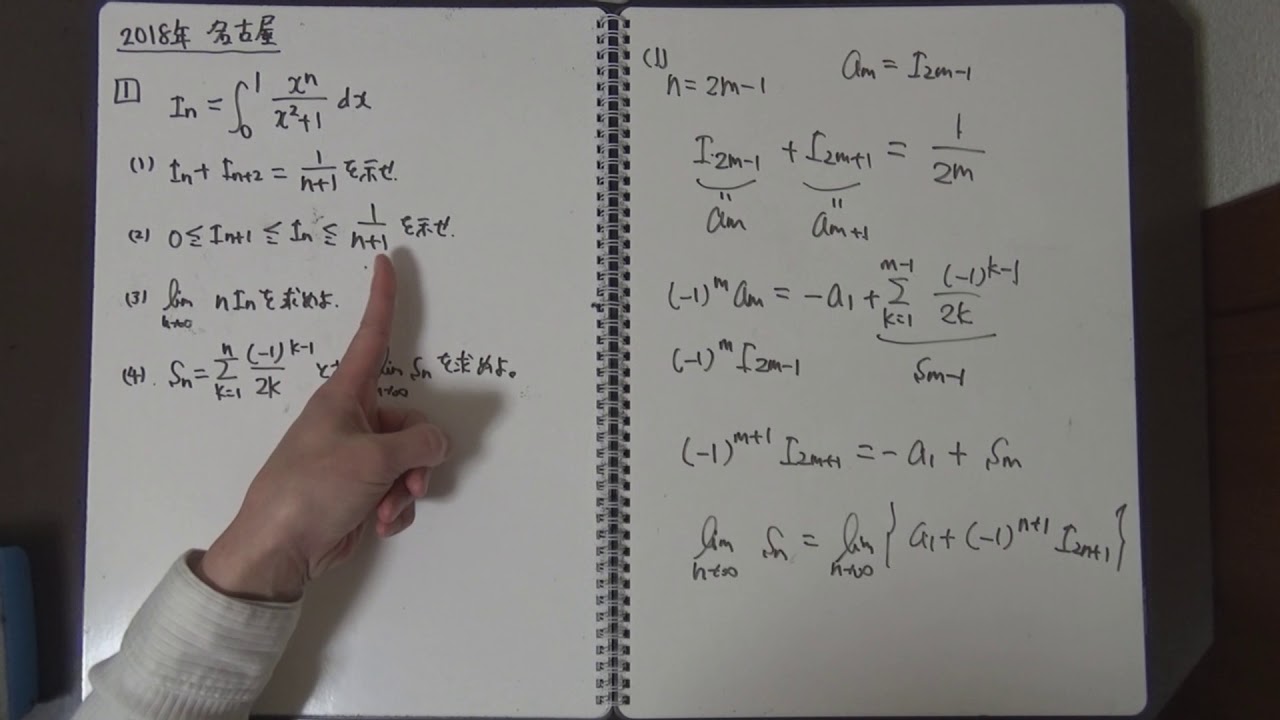 2018年 名古屋
1 In = ∫₀¹ xⁿ/(x²+1) dx
(1) In + In+2 = 1/(n+1) を示せ.
(2) 0 ≦ In+1 ≦ In ≦ 1/(n+1) を示せ.
(3) lim n→∞ nIn を求めよ.
(4). Sn = Σ k=1 n (-1)^(k-1)/2k と lim n→∞ Sn を求めよ。
(1)
n = 2m-1 am = I2m-1
I2m-1 + I2m+1 = 1/2m
" "
am am+1
(-1)^m am = -a1 + Σ k=1 m-1 (-1)^(k-1)/2k
(-1)^m I2m-1 Sm-1
(-1)^(m+1) I2m+1 = -a1 + Sm
lim n→∞ Sn = lim n→∞ { a1 + (-1)^(n+1) I2n+1 }